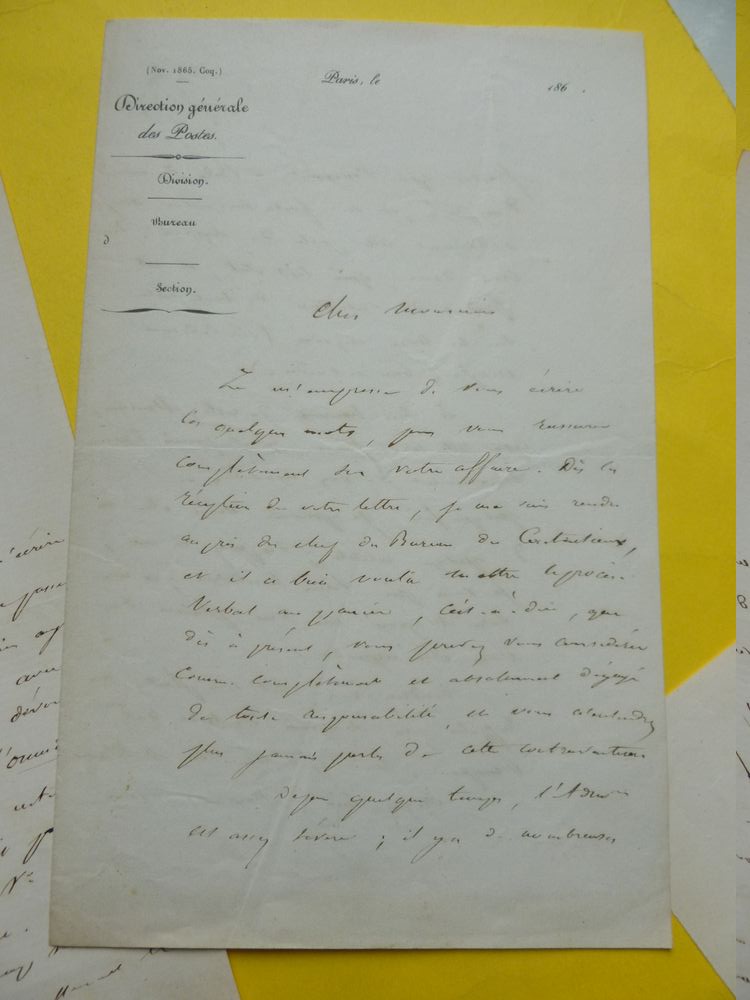 (Nov. 1865. Coq.)
Paris, le 186 .
Direction générale
des Postes.
Division.
Bureau
d
Section.
Cher Monsieur
Je m'empresse de vous écrire
ces quelques mots, pour vous rassurer
complètement sur votre affaire. Dès la
réception de votre lettre, je me suis rendu
auprès du chef du Bureau du Contentieux,
et il a bien voulu mettre le procès
Verbal au panier, c'est-à-dire, que
dès à présent, vous pouvez vous considérer
comme complètement et absolument dégagé
de toute responsabilité, et vous n'entendrez
plus jamais parler de cette contravention
Depuis quelque temps, l'Adm
est assez sévère ; il y a de nombreuses